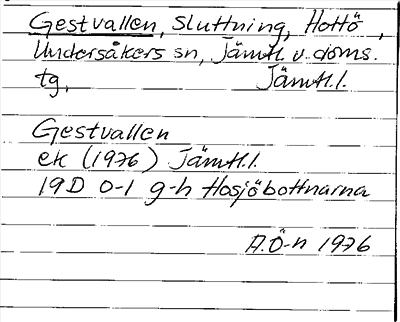 Gestvallen, sluttning, Hottö,
Undersåkers sn, Jämtl. v. doms.
tg, Jämtl.l.
Gestvallen
ek (1976) Jämtl.l.
19D 0-1 g-h Hosjöbottnarna
A.Ö-n 1976